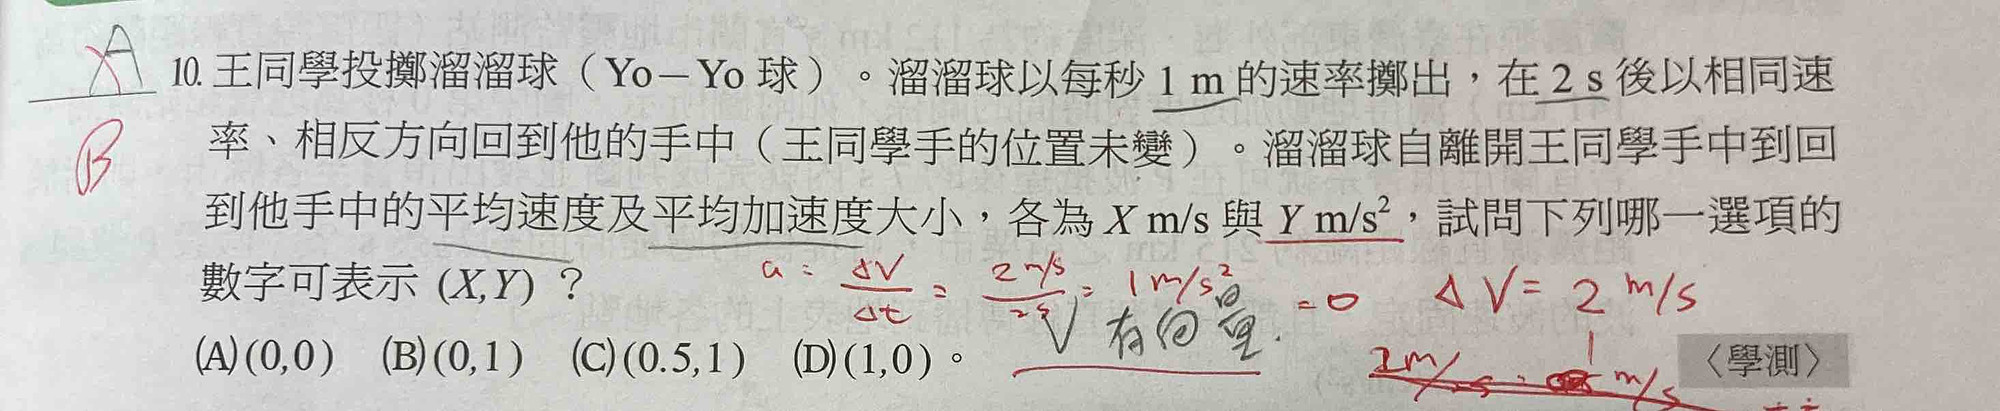 A
10. 王同學投擲溜溜球（Yo－Yo 球）。溜溜球以每秒 1 m 的速率擲出，在 2 s 後以相同速
B
率、相反方向回到他的手中（王同學手的位置未變）。溜溜球自離開王同學手中到回
到他手中的平均速度及平均加速度大小，各為 X m/s 與 Y m/s²，試問下列哪一選項的
數字可表示 (X,Y)？
a = ΔV/Δt = 2 m/s / 2s = 1 m/s²
ΔV = 2 m/s
V 有向量. = 0
(A)(0,0) (B)(0,1) (C)(0.5,1) (D)(1,0)。
〈學測〉